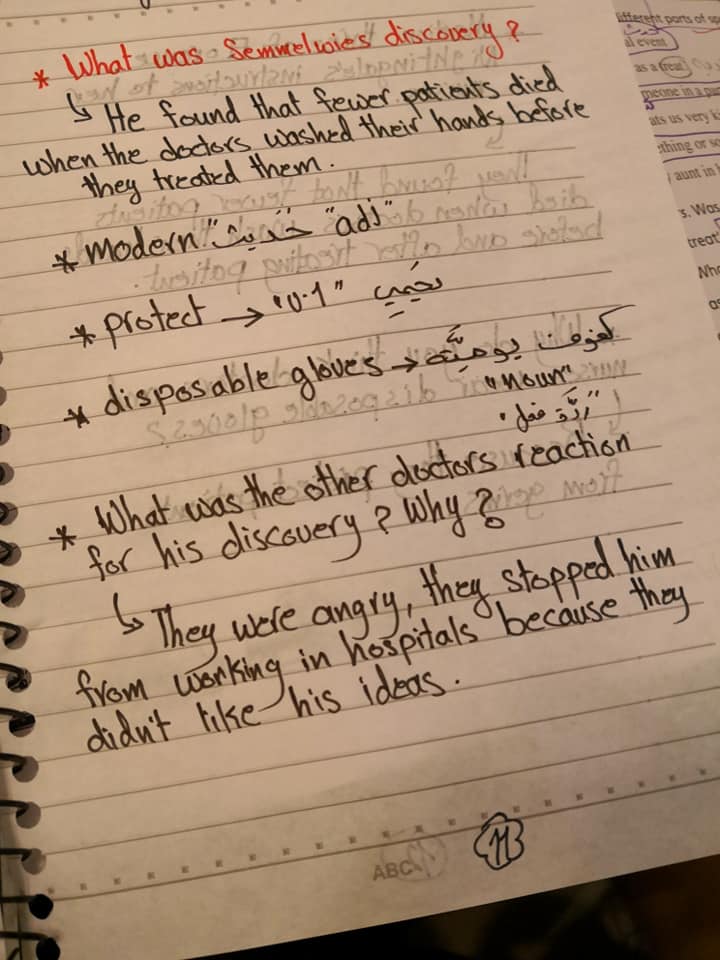 * What was Semmelwies discovery?
↳ He found that fewer patients died
when the doctors washed their hands before
they treated them.
* modern "حديث" "adj"
* protect → "v.1" يحمي
* disposable gloves →
"noun"
"ردّة فعل"
* What was the other doctors reaction
for his discovery? Why?
↳ They were angry, they stopped him
from working in hospitals because they
didn't like his ideas.
ABC
11
different parts of
al event
as a treat
meone in a
ats us very
thing or
aunt in
s. Was
treat